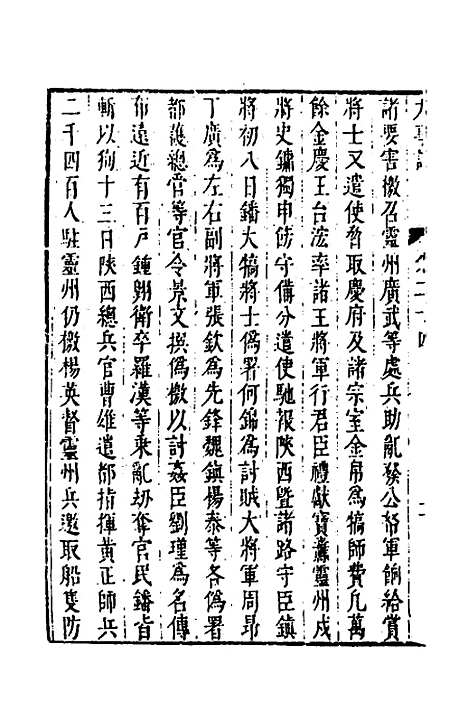 大事記 卷二十四
諸要害檄召靈州廣武等處兵助亂發公帑軍餉給賞
將士又遣使暫取慶府及諸宗室金帛為犒師費凡萬
餘金慶王台浤率諸王將軍行君臣禮獻寶靈州戍
將史鏞獨申飭守備分遣使馳報陜西暨諸路守臣鎮
將初八日鐇大犒將士為署何錦為討賊大將軍周昂
丁廣為左右副將軍張欽為先鋒魏鎮楊泰等各偽署
都護總官等官令景文撰偽檄以討姦臣劉瑾為名傳
布遠近有百戶鍾翺衛卒羅漢等乘亂劫奪官民鐇皆
斬以狥十三日陜西總兵官曹雄遣都指揮黃正師兵
二千四百人駐靈州仍檄楊英督靈州兵邀取船隻防